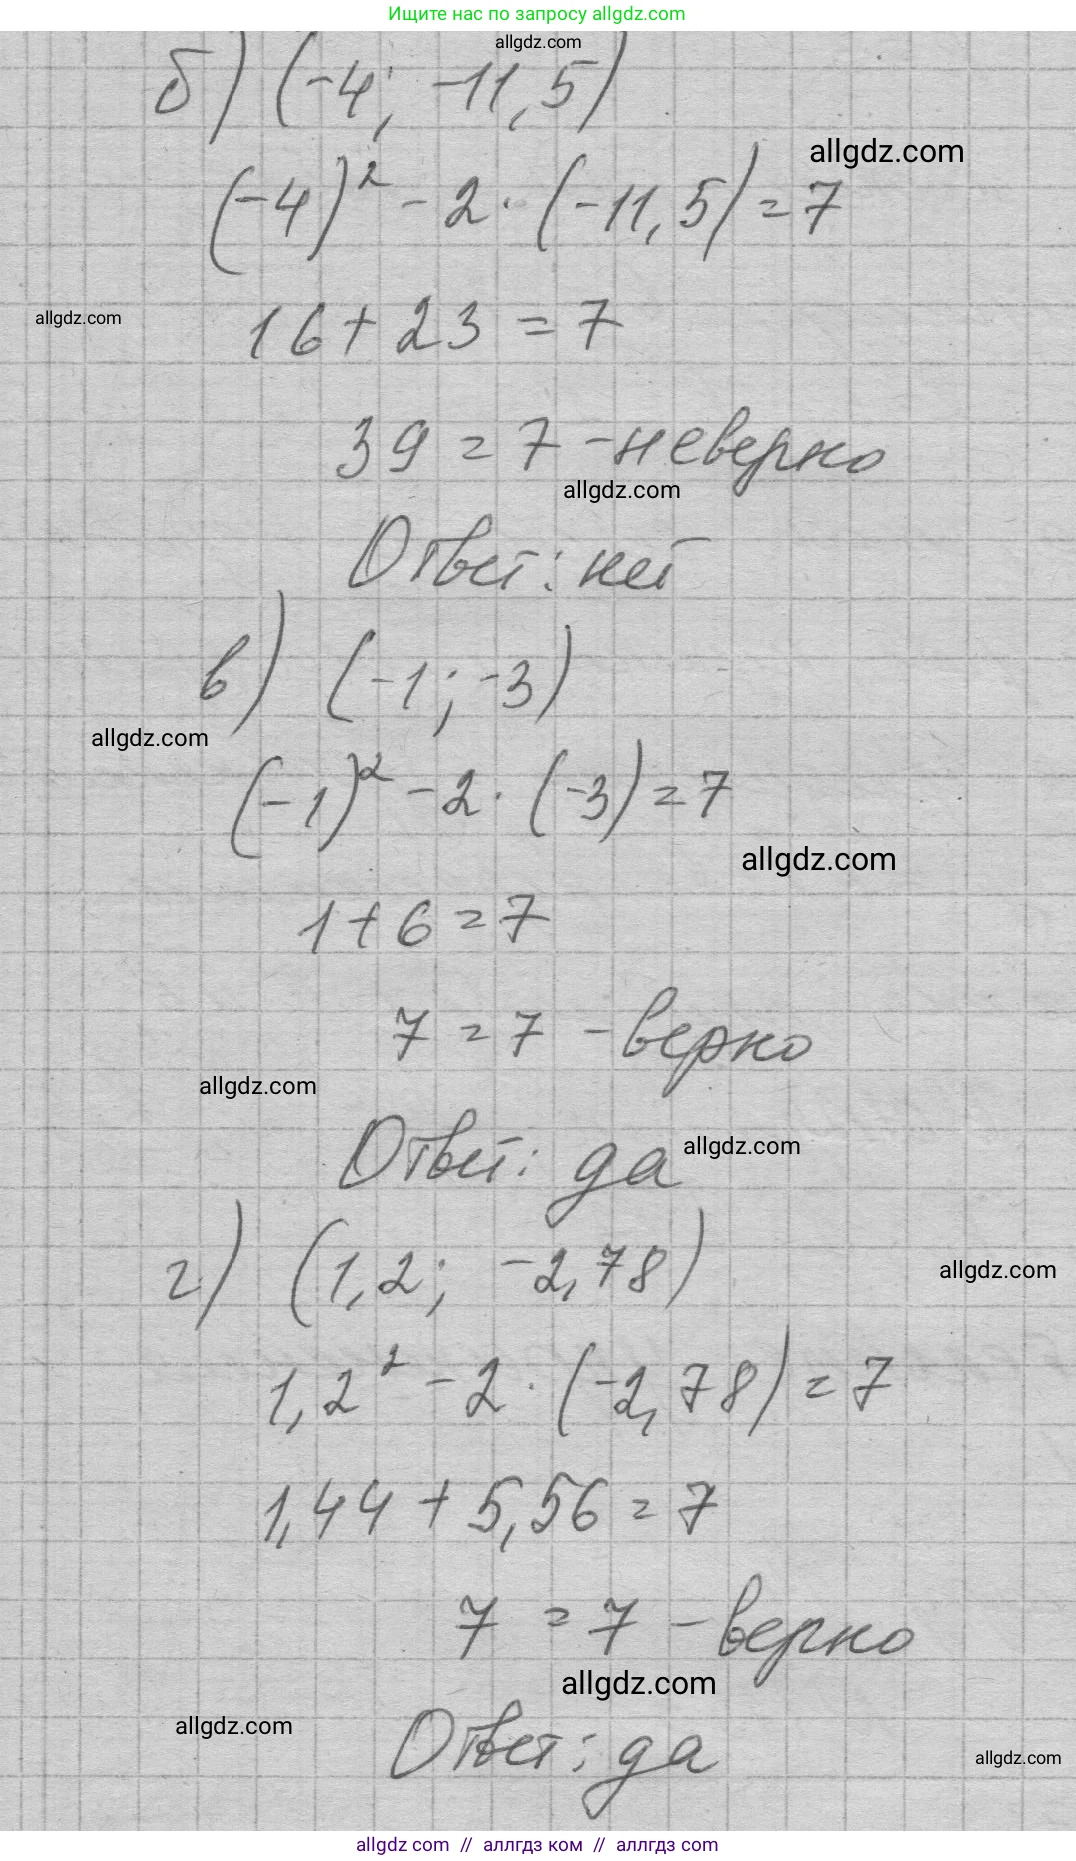 Ищите нас по запросу allgdz.com
allgdz.com
б) (-4; -11,5)
allgdz.com
(-4)² - 2 · (-11,5) = 7
allgdz.com
16 + 23 = 7
39 = 7 - неверно
allgdz.com
Ответ: нет
в) (-1; -3)
allgdz.com
(-1)² - 2 · (-3) = 7
allgdz.com
1 + 6 = 7
7 = 7 - верно
allgdz.com
Ответ: да
allgdz.com
г) (1,2; -2,78)
allgdz.com
1,2² - 2 · (-2,78) = 7
1,44 + 5,56 = 7
7 = 7 - верно
allgdz.com
allgdz.com
Ответ: да
allgdz.com
allgdz com // аллгдз ком // аллгдз com